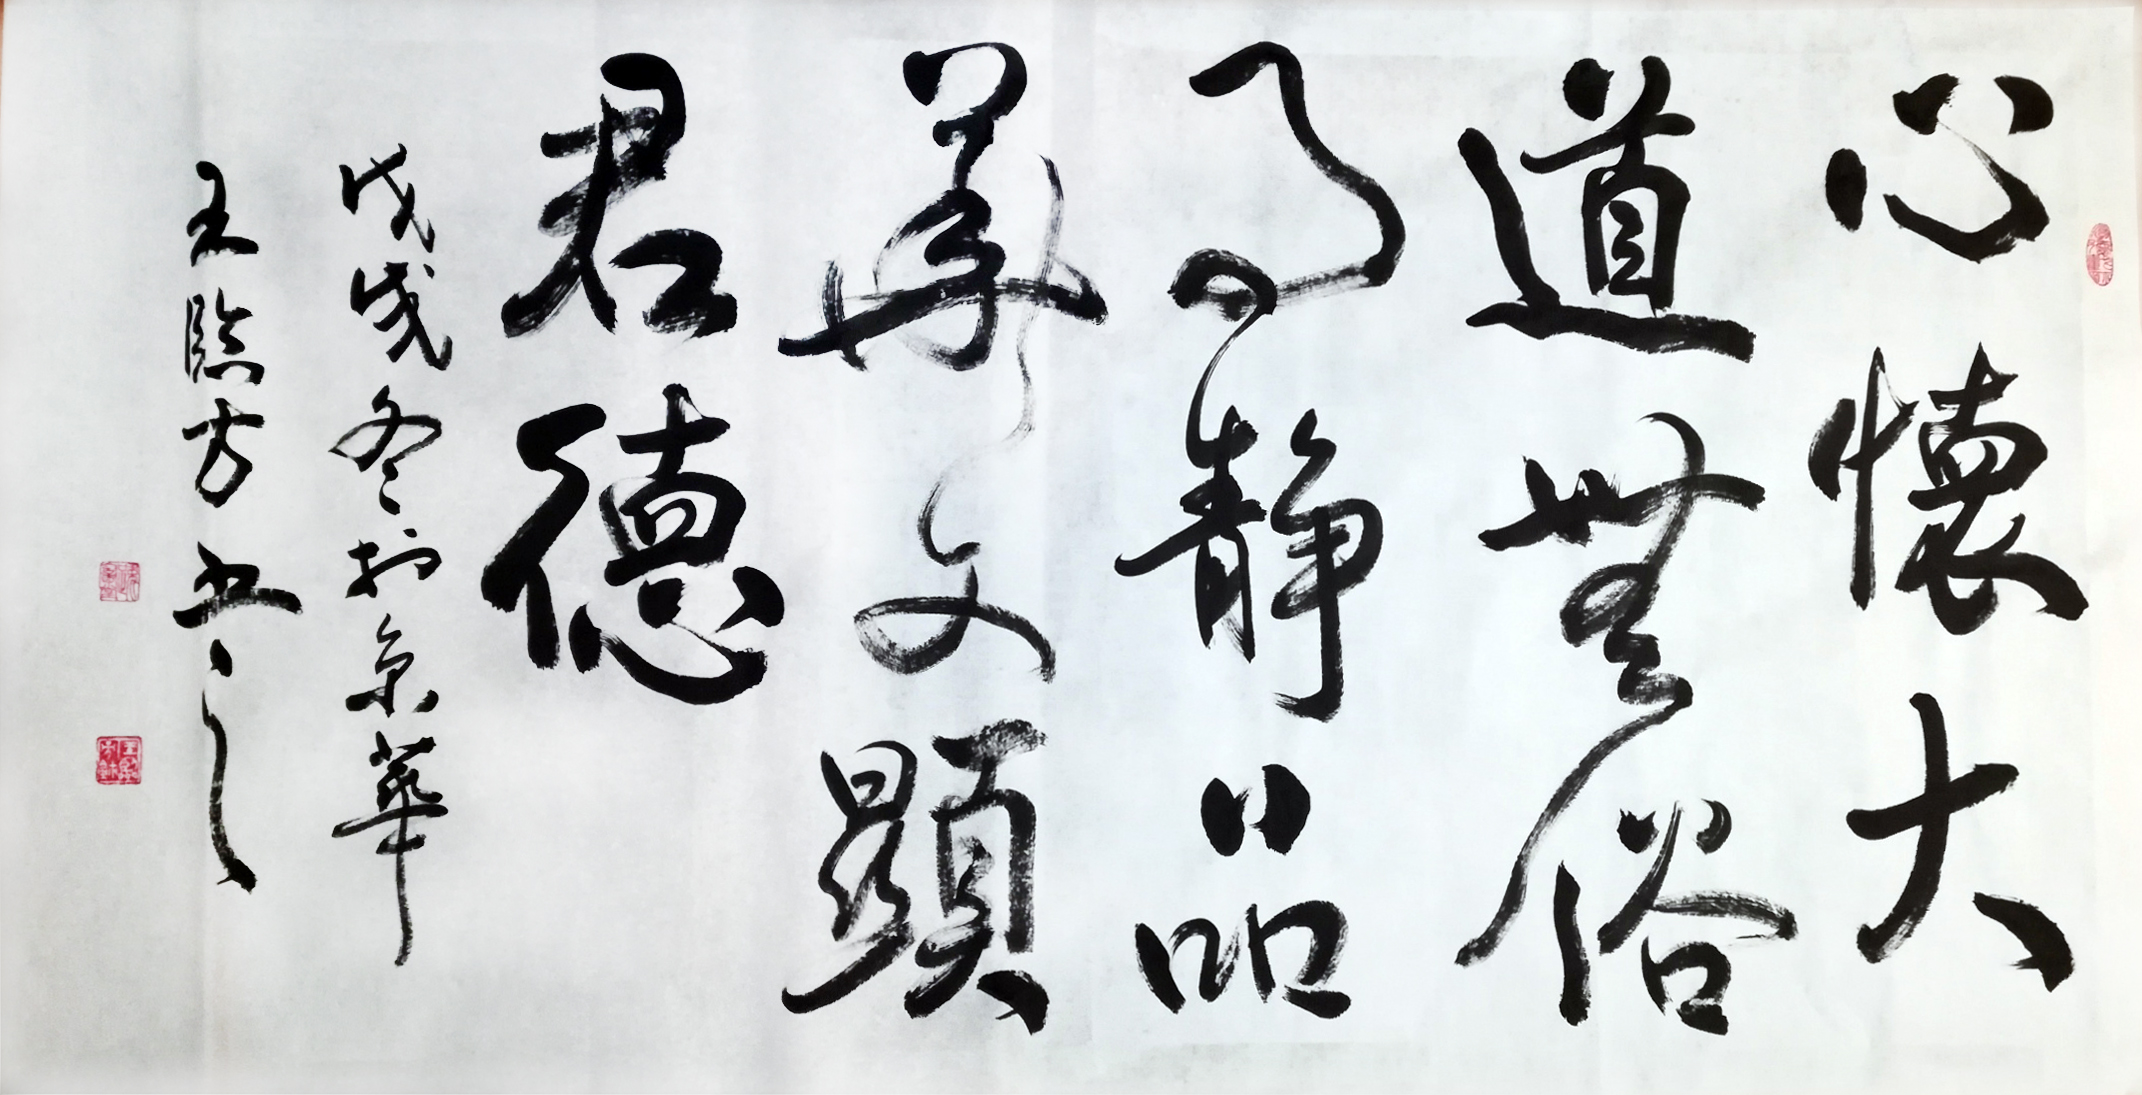 心懷大
道無俗
事静品
華文顯
君德
戊戌冬於京華
王臨方書之